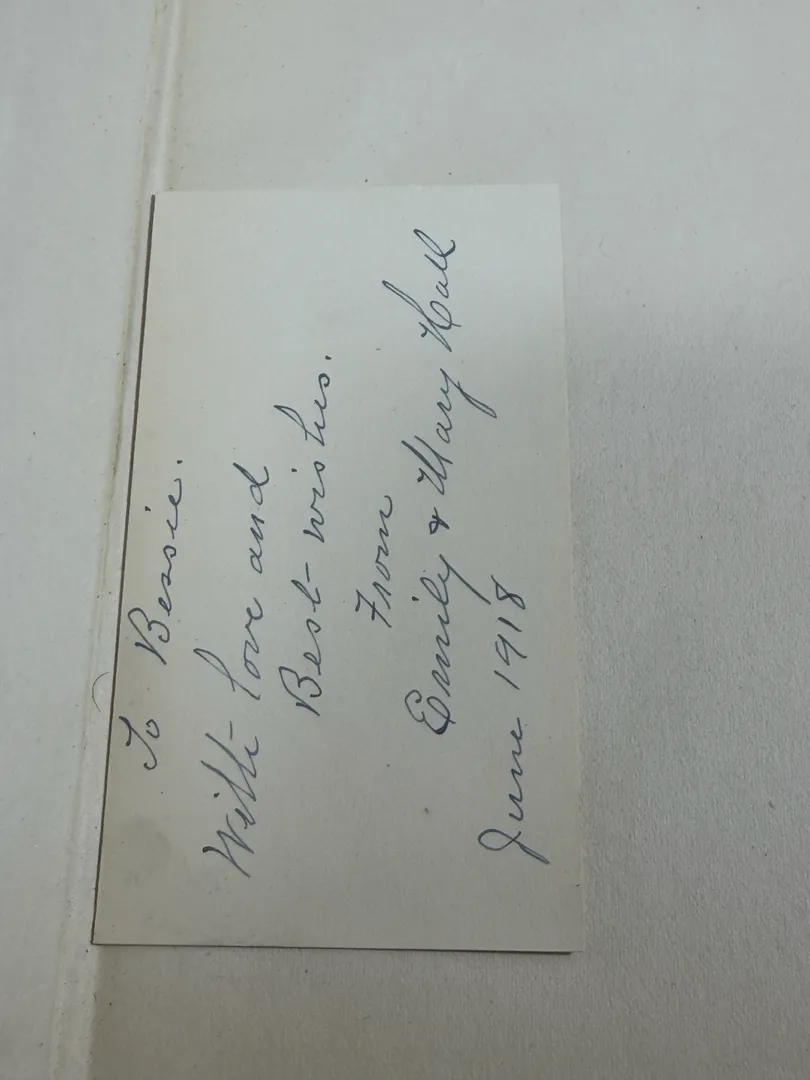 To Bessie.
With love and
Best wishes.
From
Emily & Mary Hall
June 1918